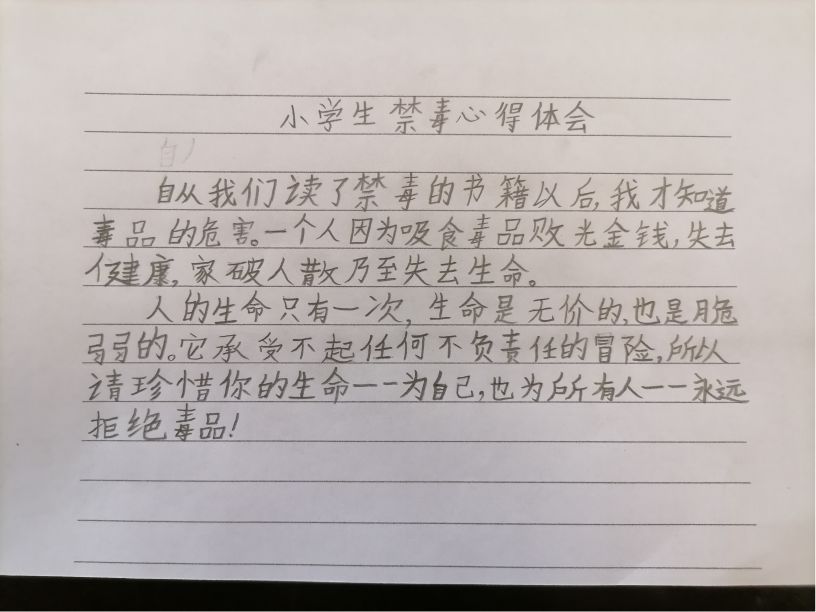 小学生禁毒心得体会
自从我们读了禁毒的书籍以后,我才知道
毒品的危害。一个人因为吸食毒品败光金钱,失去
健康,家破人散乃至失去生命。
人的生命只有一次,生命是无价的,也是脆
弱的。它承受不起任何不负责任的冒险,所以
请珍惜你的生命——为自己,也为所有人——永远
拒绝毒品!